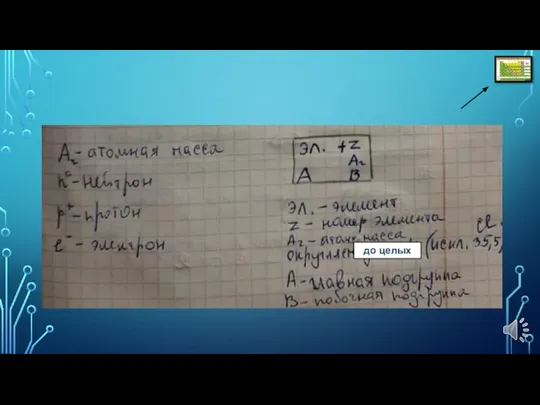 Ar - атомная масса
n° - нейтрон
p⁺ - протон
e⁻ - электрон
эл. +Z
Ar
A B
эл. - элемент
Z - номер элемента
Ar - атом. масса Cl -
до целых (искл. 35,5)
A - главная подгруппа
B - побочная подгруппа